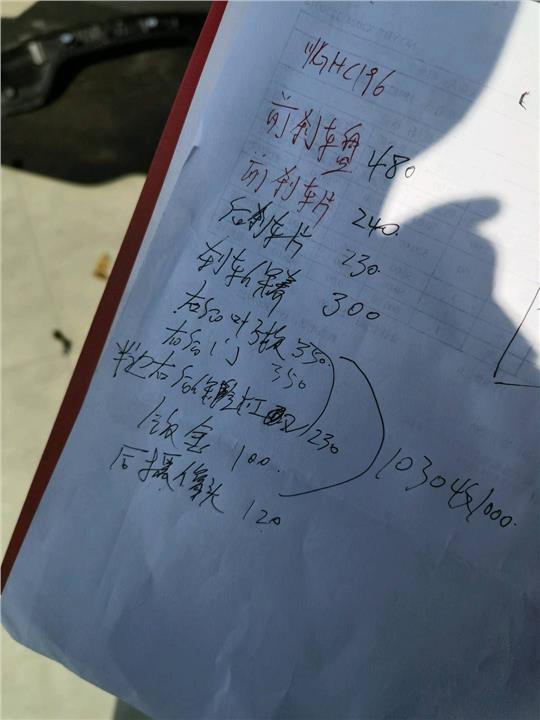 GHC196
前刹车盘 480
前刹车片 240.
后刹车片 230.
刹车保养 300
右后叶子板 350.
右后门 350
半边右后保险杠 230
钣金 100.
后摄像头 120
1030收1000.